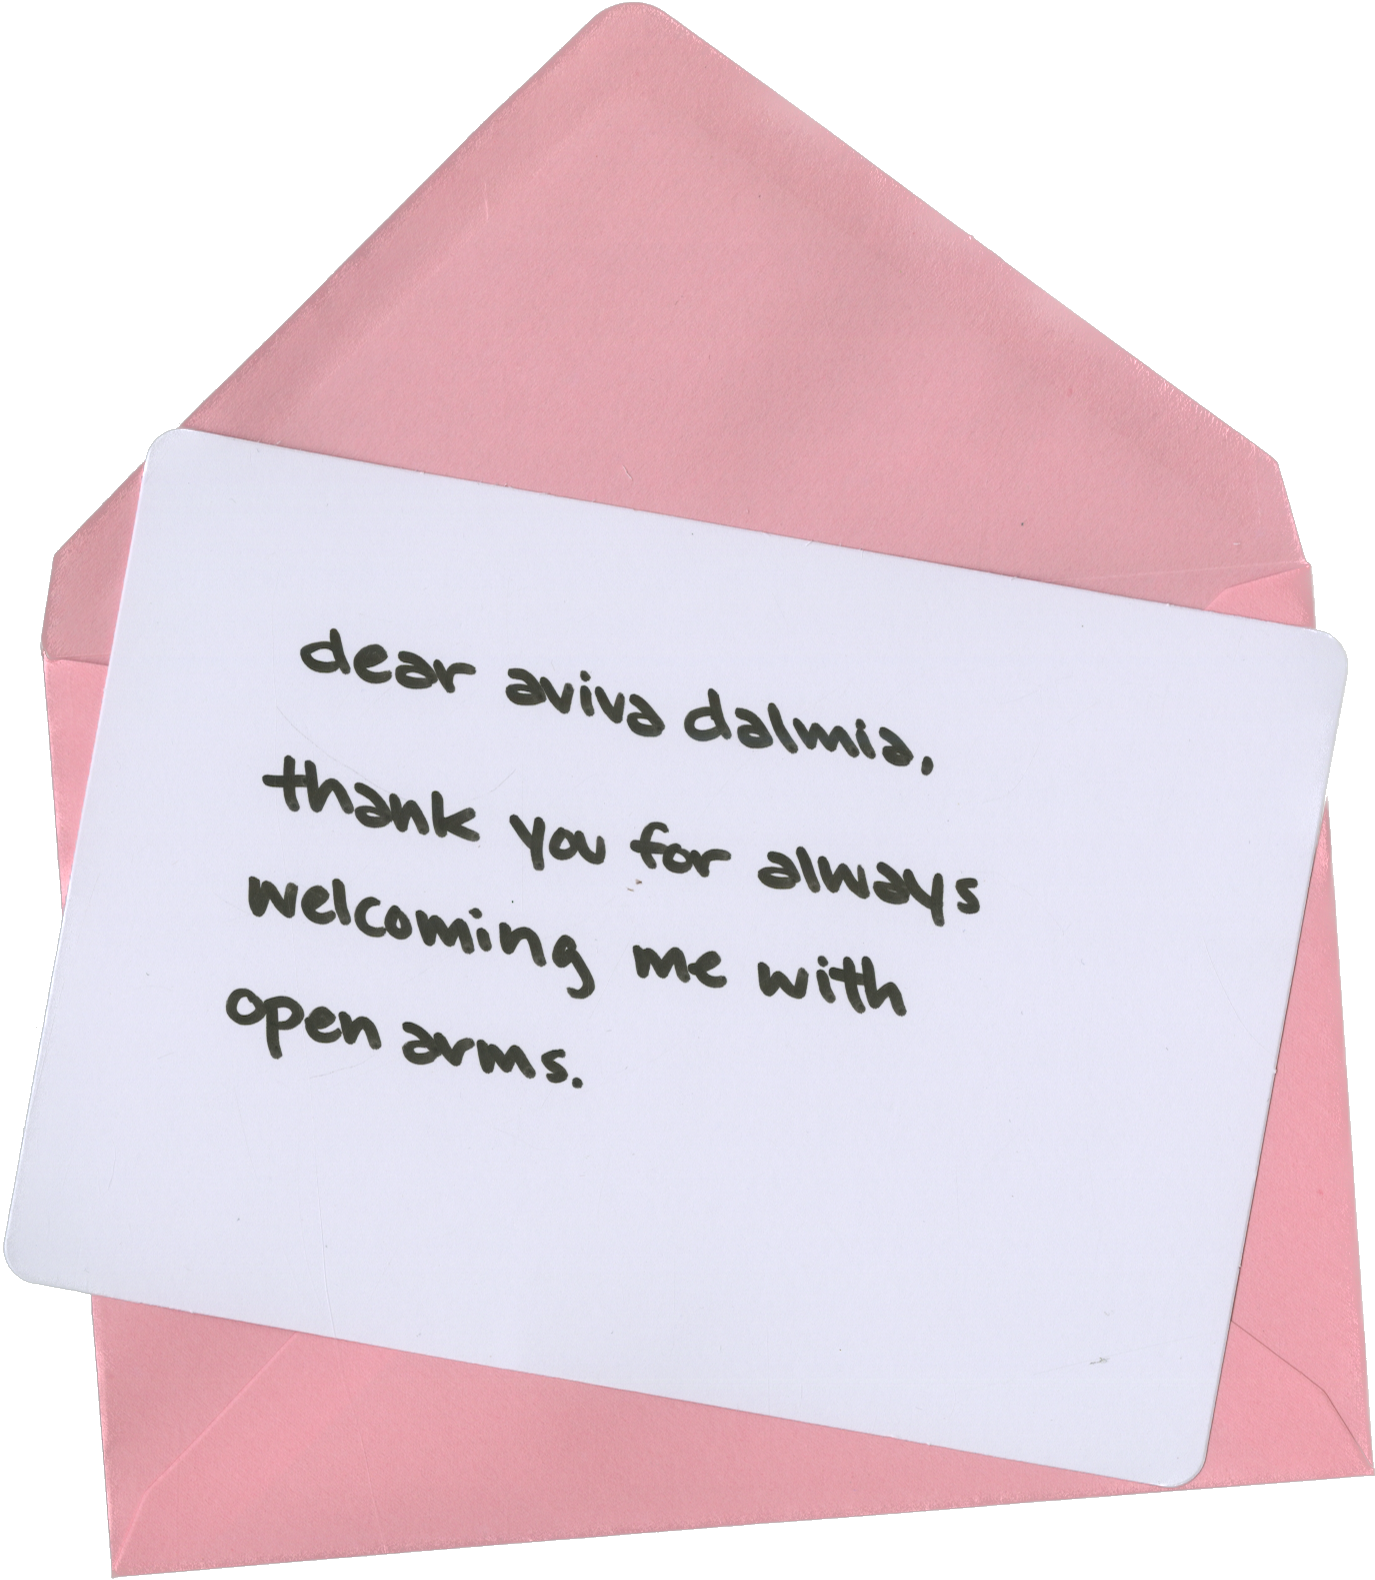 dear aviva dalmia,
thank you for always
welcoming me with
open arms.